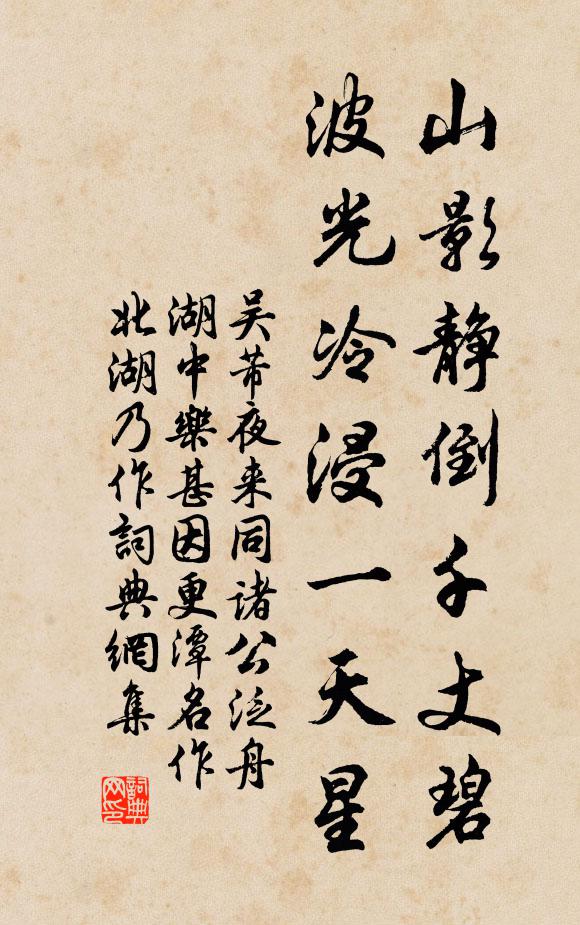 山影静倒千丈碧
波光冷浸一天星
吴芾夜来同諸公泛舟
湖中樂甚因更潭名作
北湖乃作詞典網集
詞典
网印